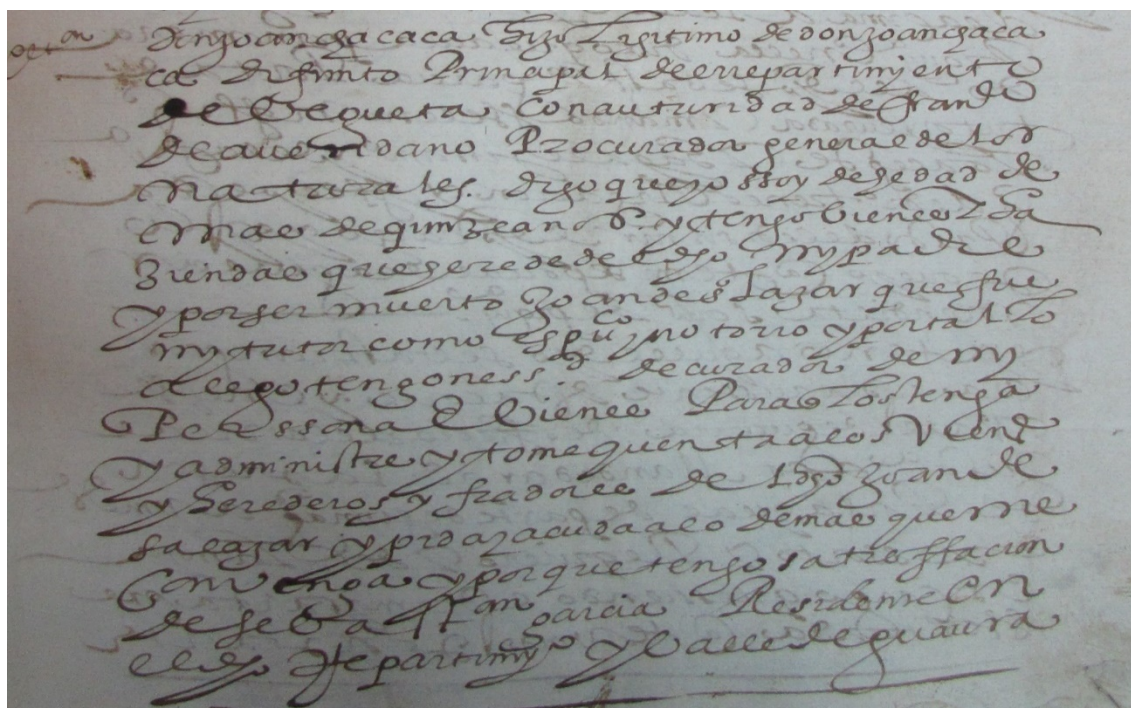 don joan chaca caca hijo ligitimo de don joan chaca
ca difunto Principal del rrepartimyento
de Vegueta con auturidad de fran.do
de avendaño Procurador general de los
naturales. digo que yo ssoy de hedad de
mas de quinze años. y tengo bienes E ha
ziendas que herede del d[ic]ho my padre
y por ser muerto Joan de salazar que fue
my tutor como es puco y notorio y por tal lo
alego tengo nessd de curador de my
Perssona E bienes Para q los tenga
y administre y tome quenta a los
y herederos y fiadores del dho Joan de
salazar y pida y acuda a lo demas que me
convenga y por que tengo satisffacion
de garcia Residente en
el dho Repartimyo y Valle de guaura